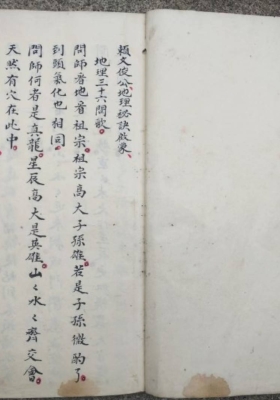 賴文俊公地理秘訣啟蒙
地理三十六問歌
問師看地音祖宗祖宗高大子孫雄若是子孫微的了
到頭氣化也相同
問師何者是真龍星辰高大是英雄山々水々齊交會
天然有穴在此中